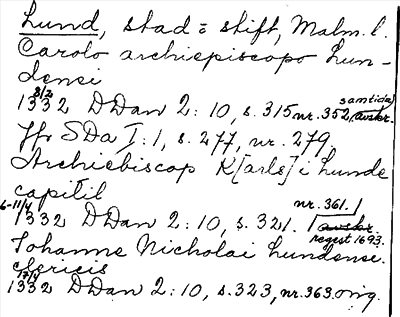 Lund, stad = stift, Malm. l.
Carolo archiepiscopo Lun-
densi
8/2 samtida
1332 DDan 2:10, s. 315 nr. 352, avskr.
Jfr SDa I:1, s. 277, nr. 279,
Archiebiscop K[arls] i Lunde
capitil
6-11/4 nr. 361.
1332 DDan 2:10, s. 321. avskr.
regest 1693.
Johanne Nicholai Lundense.
clericis
17/4
1332 DDan 2:10, s. 323, nr. 363. orig.